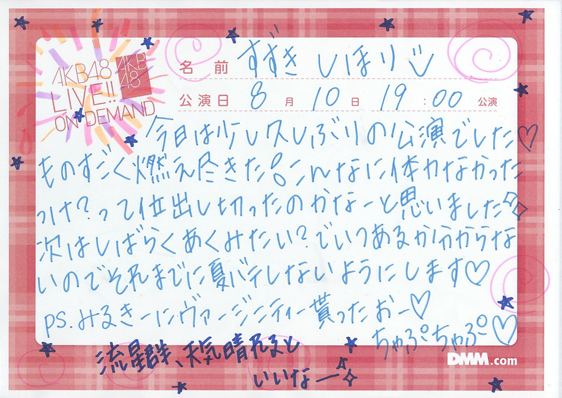 AKB48
LIVE!!
ON DEMAND
AKB
48
名前 すずき しほり
公演日 8月10日19:00公演
今日は少し久しぶりの公演でした♡
ものすごく燃え尽きた。こんなに体力なかった
っけ?って位出し切ったのかなーと思いました
次はしばらくあくみたい?でいつあるか分からな
いのでそれまでに夏バテしないようにします♡
ps.みるきーにヴァージニティー貰ったおー♡
ちゅぷちゅぷ♡
流星群、天気晴れると
いいなー
DMM.com